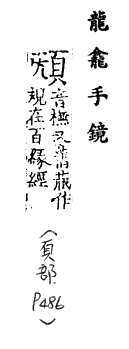 龍龕手鏡
頁音又舊藏作
在百緣經
(頁部 P486)